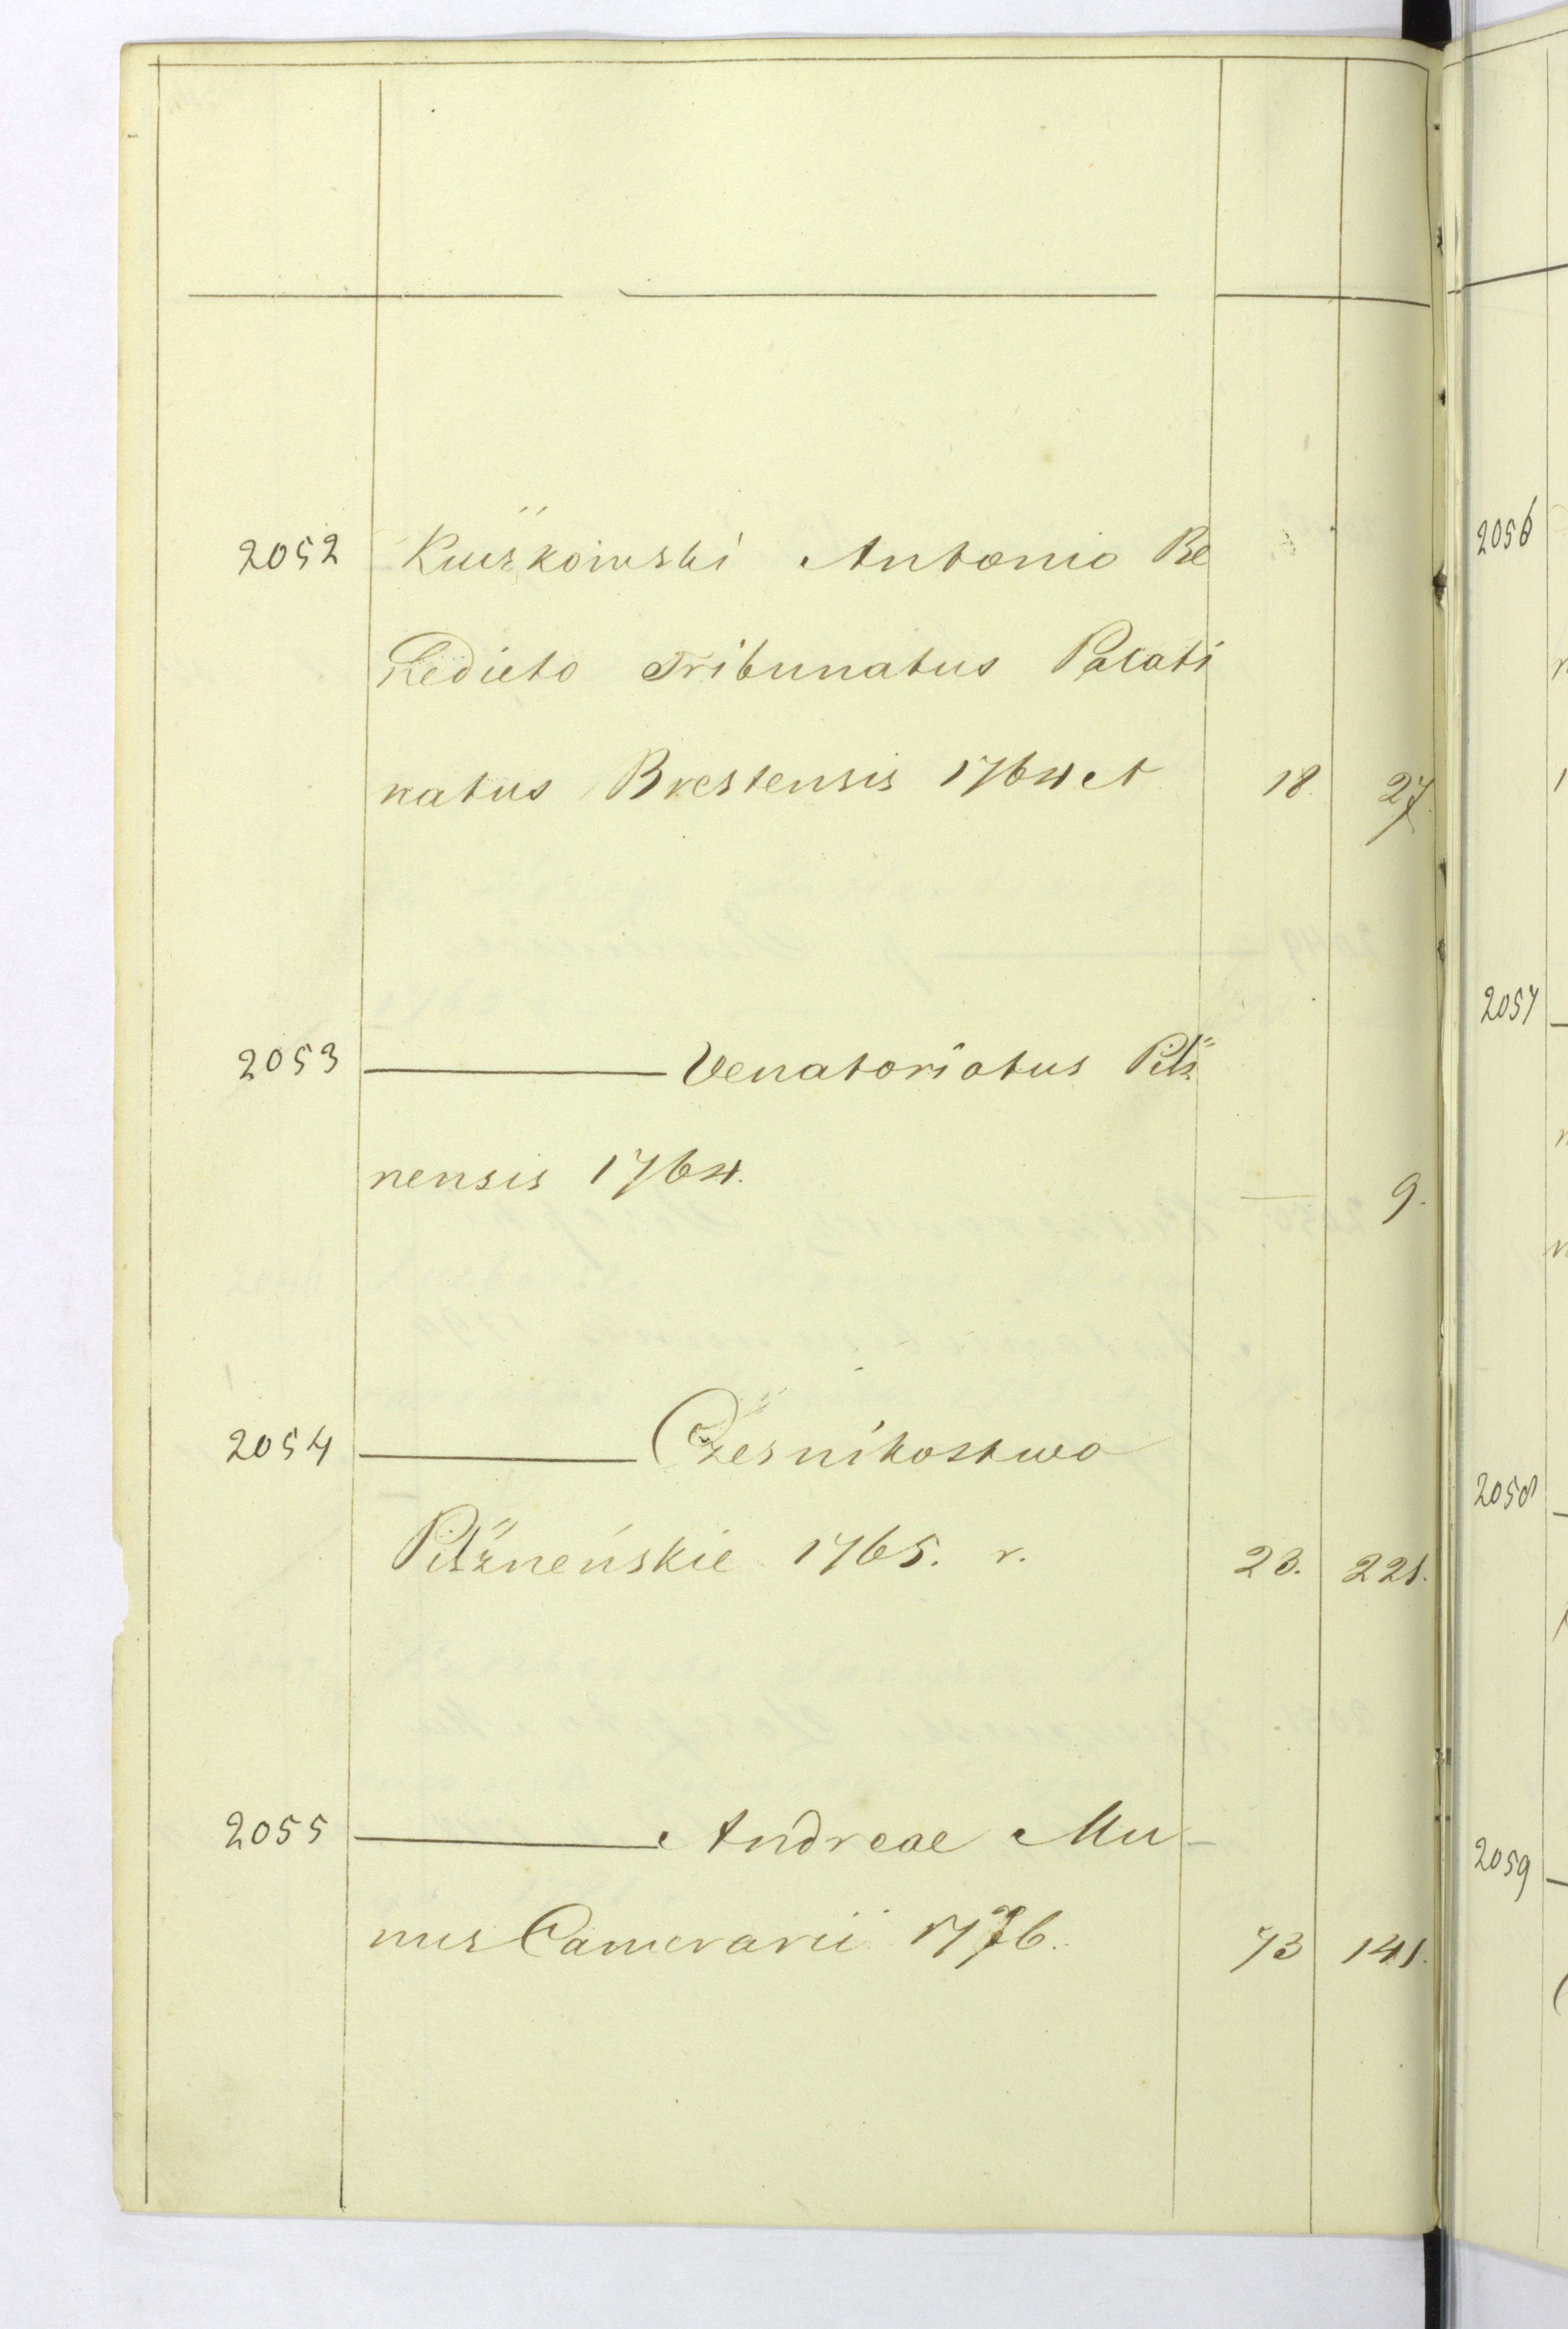 2052 Kuczkowski Antonio Be
nedicto Tribunatus Palati
natus Brestensis 1764 et 18. 27.
2053 ——— Venatoriatus Pilz
nensis 1764. — 9.
2054 ——— Czesnikostwo
Pilzneńskie 1765. r. 23. 221.
2055 ——— Andreae Mu-
nus Camerarii 1776. 73 141.
2056
2057
2058
2059